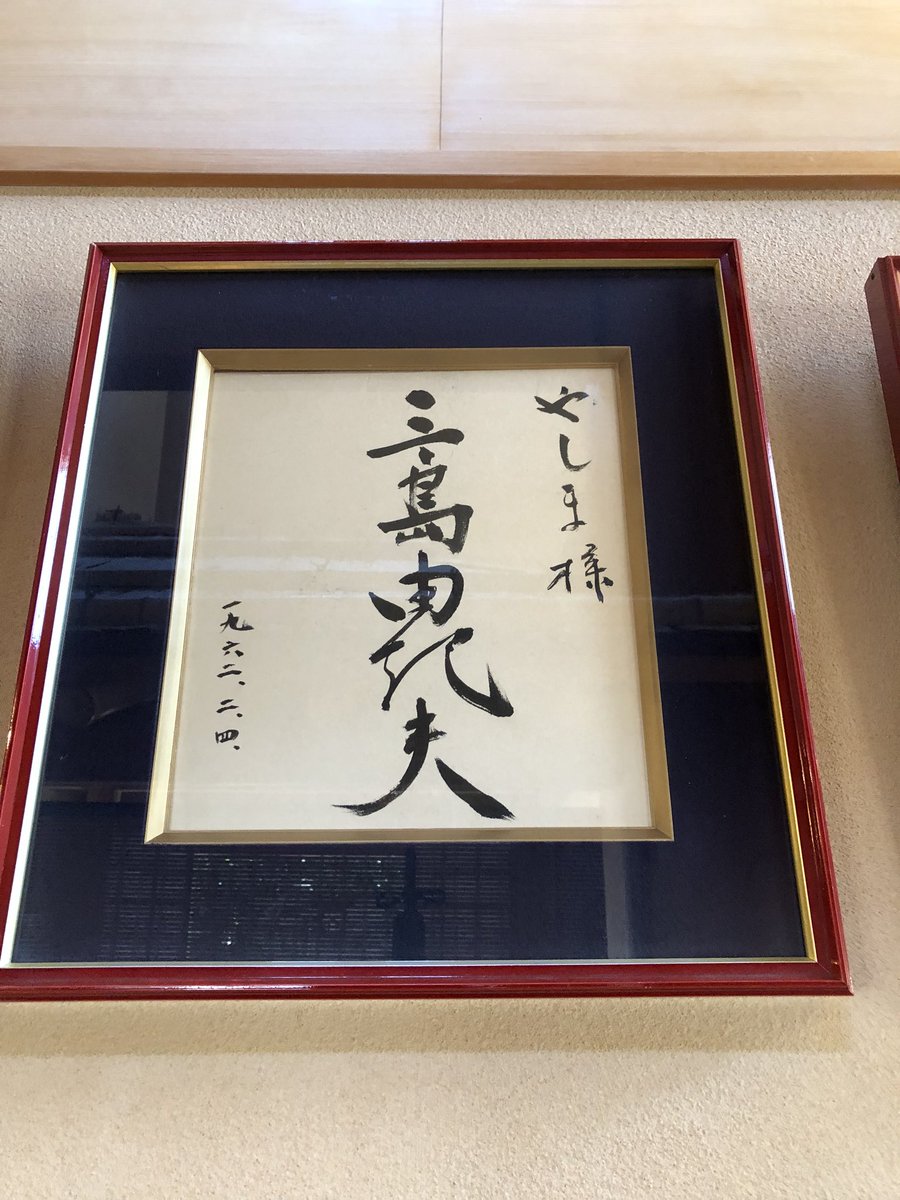 やしま様
三島由紀夫
一九六二、二、四、